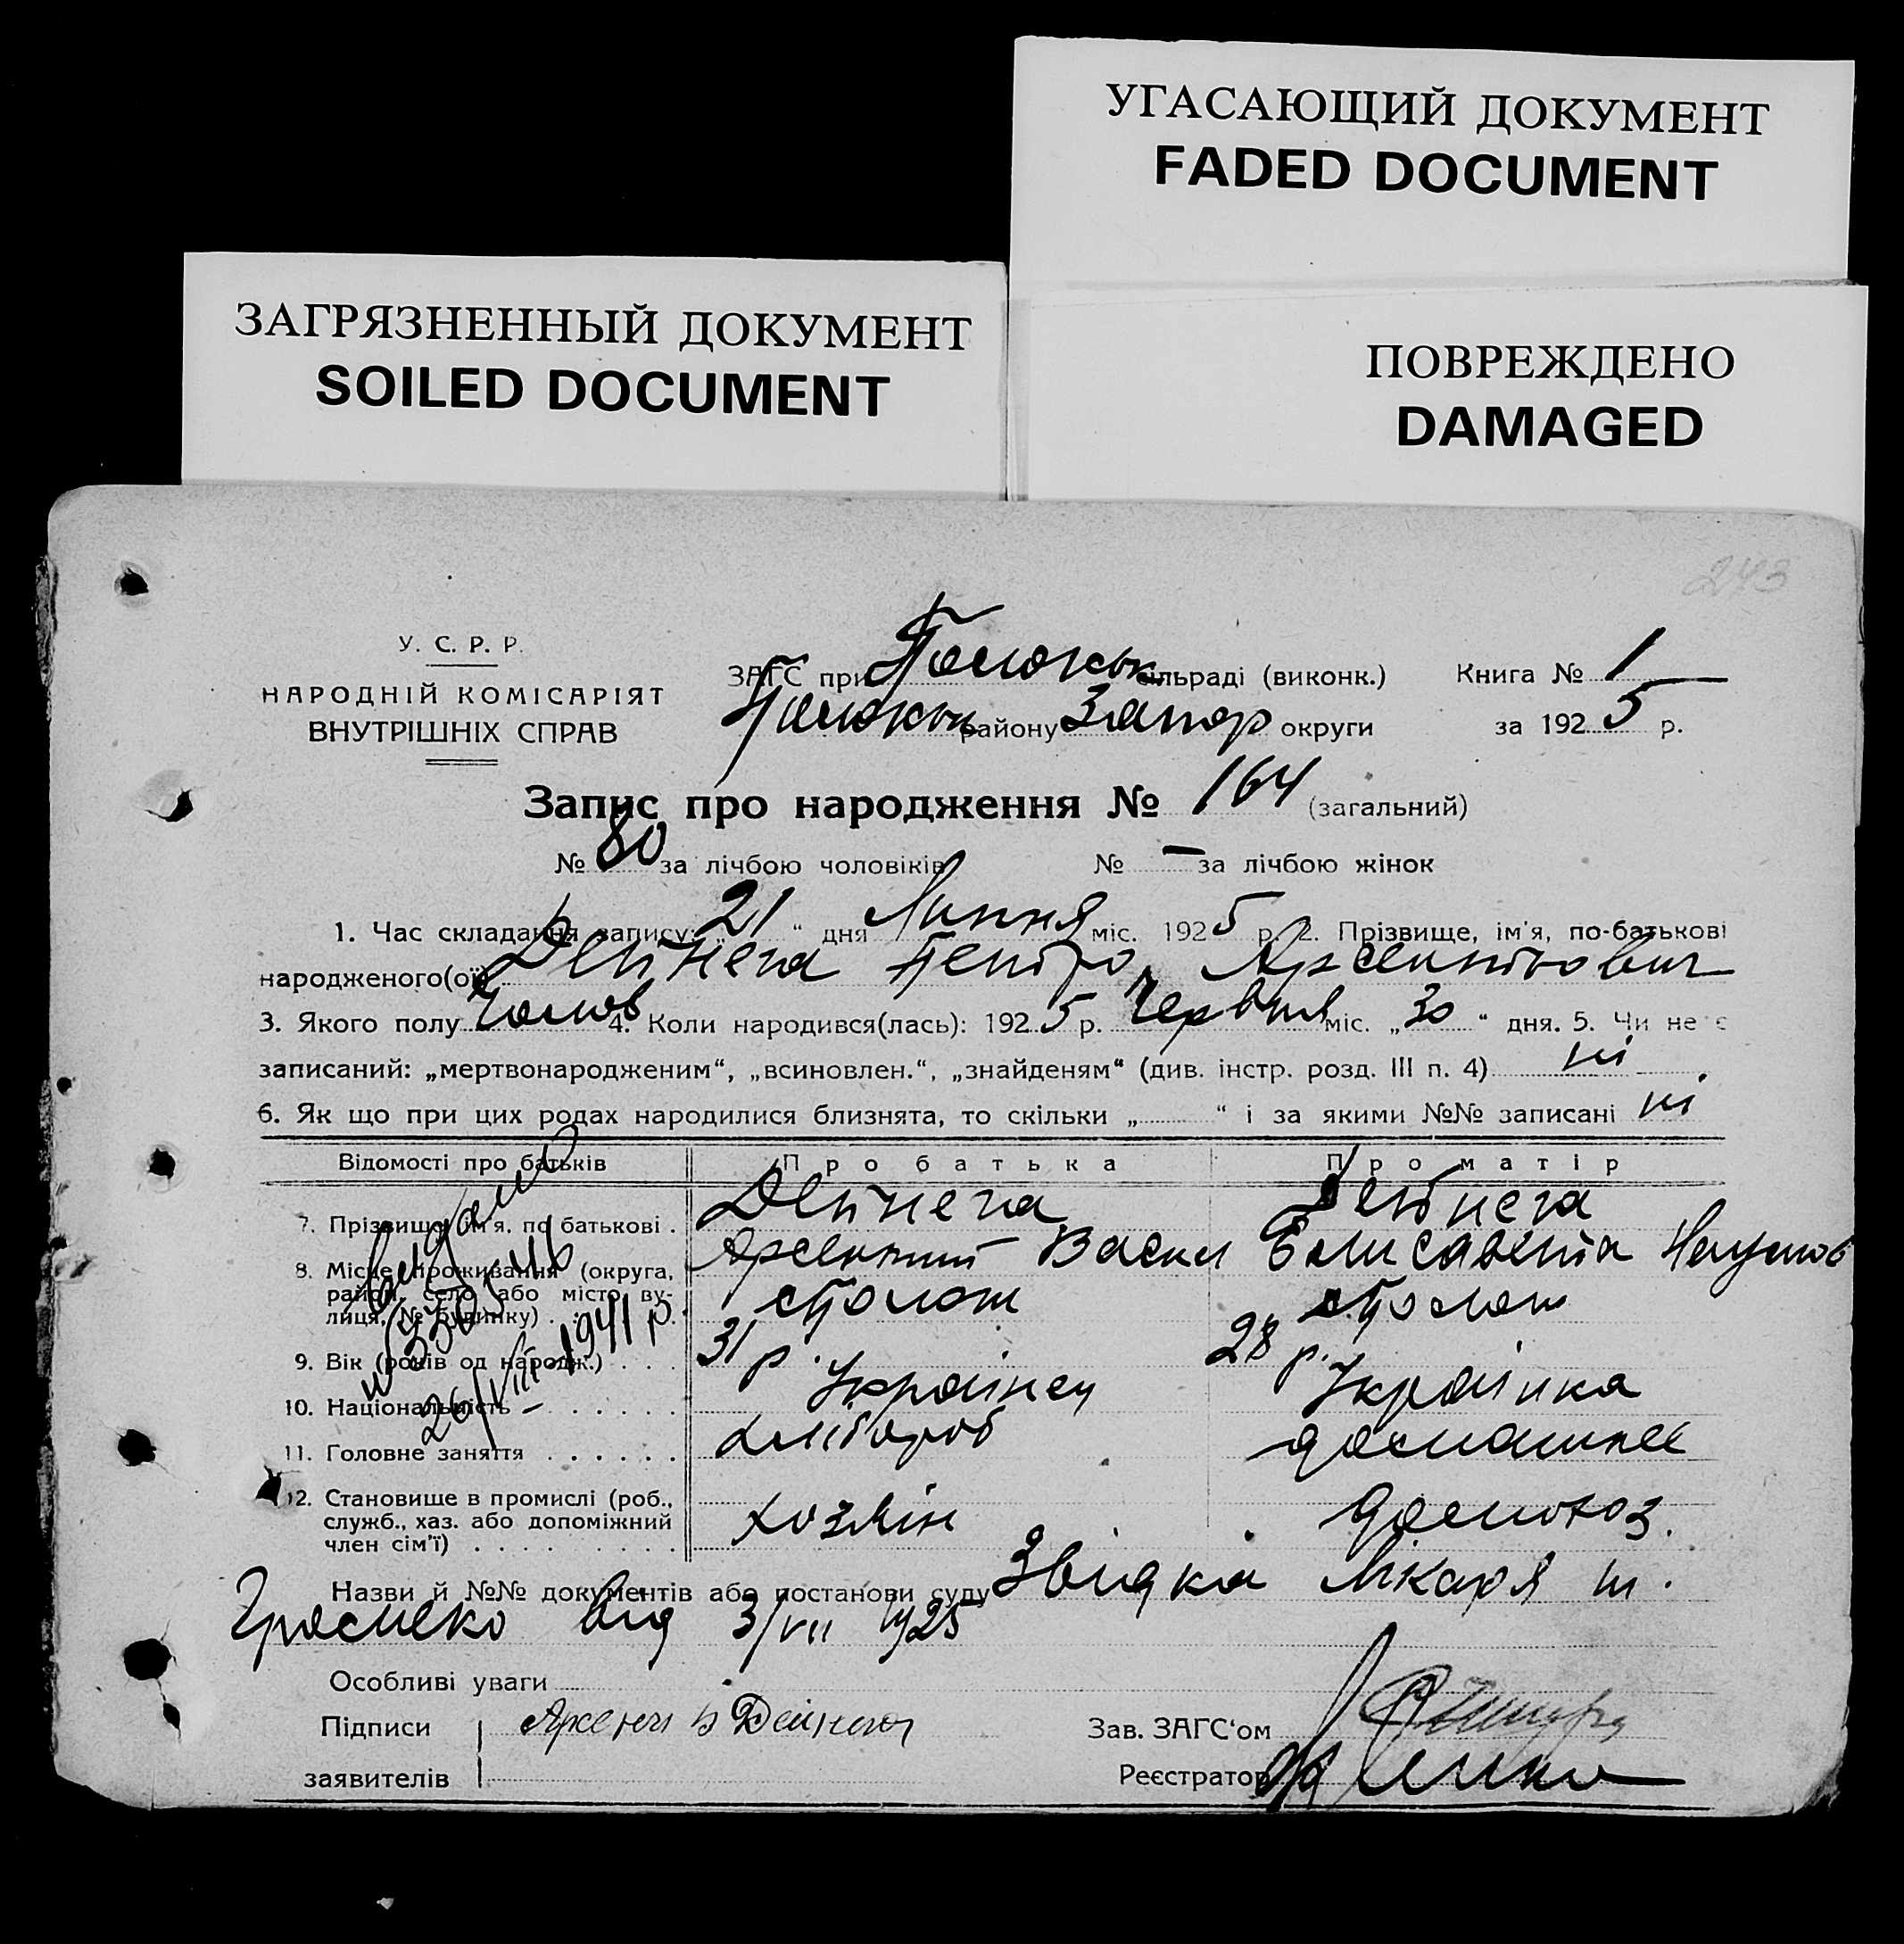 УГАСАЮЩИЙ ДОКУМЕНТ
FADED DOCUMENT
ЗАГРЯЗНЕННЫЙ ДОКУМЕНТ
SOILED DOCUMENT
ПОВРЕЖДЕНО
DAMAGED
243
У. С. Р. Р.
НАРОДНІЙ КОМІСАРІЯТ
ВНУТРІШНІХ СПРАВ
ЗАГС при сільраді (виконк.) Книга № 1
району Запор округи за 1925 р.
Запис про народження № 164 (загальний)
№ 80 за лічбою чоловіків № — за лічбою жінок
1. Час складання запису: „21“ дня Липня міс. 1925 р. 2. Прізвище, ім'я, по-батькові
народженого(ої) Дейнега Петро Арсентьович
3. Якого полу Чолов 4. Коли народився(лась): 1925 р. Червня міс. „30“ дня. 5. Чи не є
записаний: „мертвонародженим“, „всиновлен.“, „знайденям“ (див. інстр. розд. III п. 4) ні
6. Як що при цих родах народилися близнята, то скільки „ “ і за якими №№ записані ні
Відомості про батьків Про батька Про матір
7. Прізвище, ім'я, по батькові . Дейнега Дейнега
Арсентий Васил Елисавета Наумов
8. Місце проживання (округа,
район, село або місто, ву-
лиця, № будинку) . .
9. Вік (років од народж.) . . . 31 р. 28 р.
10. Національність . . . . . . Українец Українка
11. Головне заняття . . . . . . хлібороб домашнее
12. Становище в промислі (роб.,
служб., хаз. або допоміжний
член сім'ї) . . . . . . . . . хозяін домохоз.
видано
26/VIII — 1941 р.
Назви й №№ документів або постанови суду Звідка лікаря
від 3/VII 1925
Особливі уваги
Підписи Дейнега
заявителів
Зав. ЗАГС'ом
Реєстратор